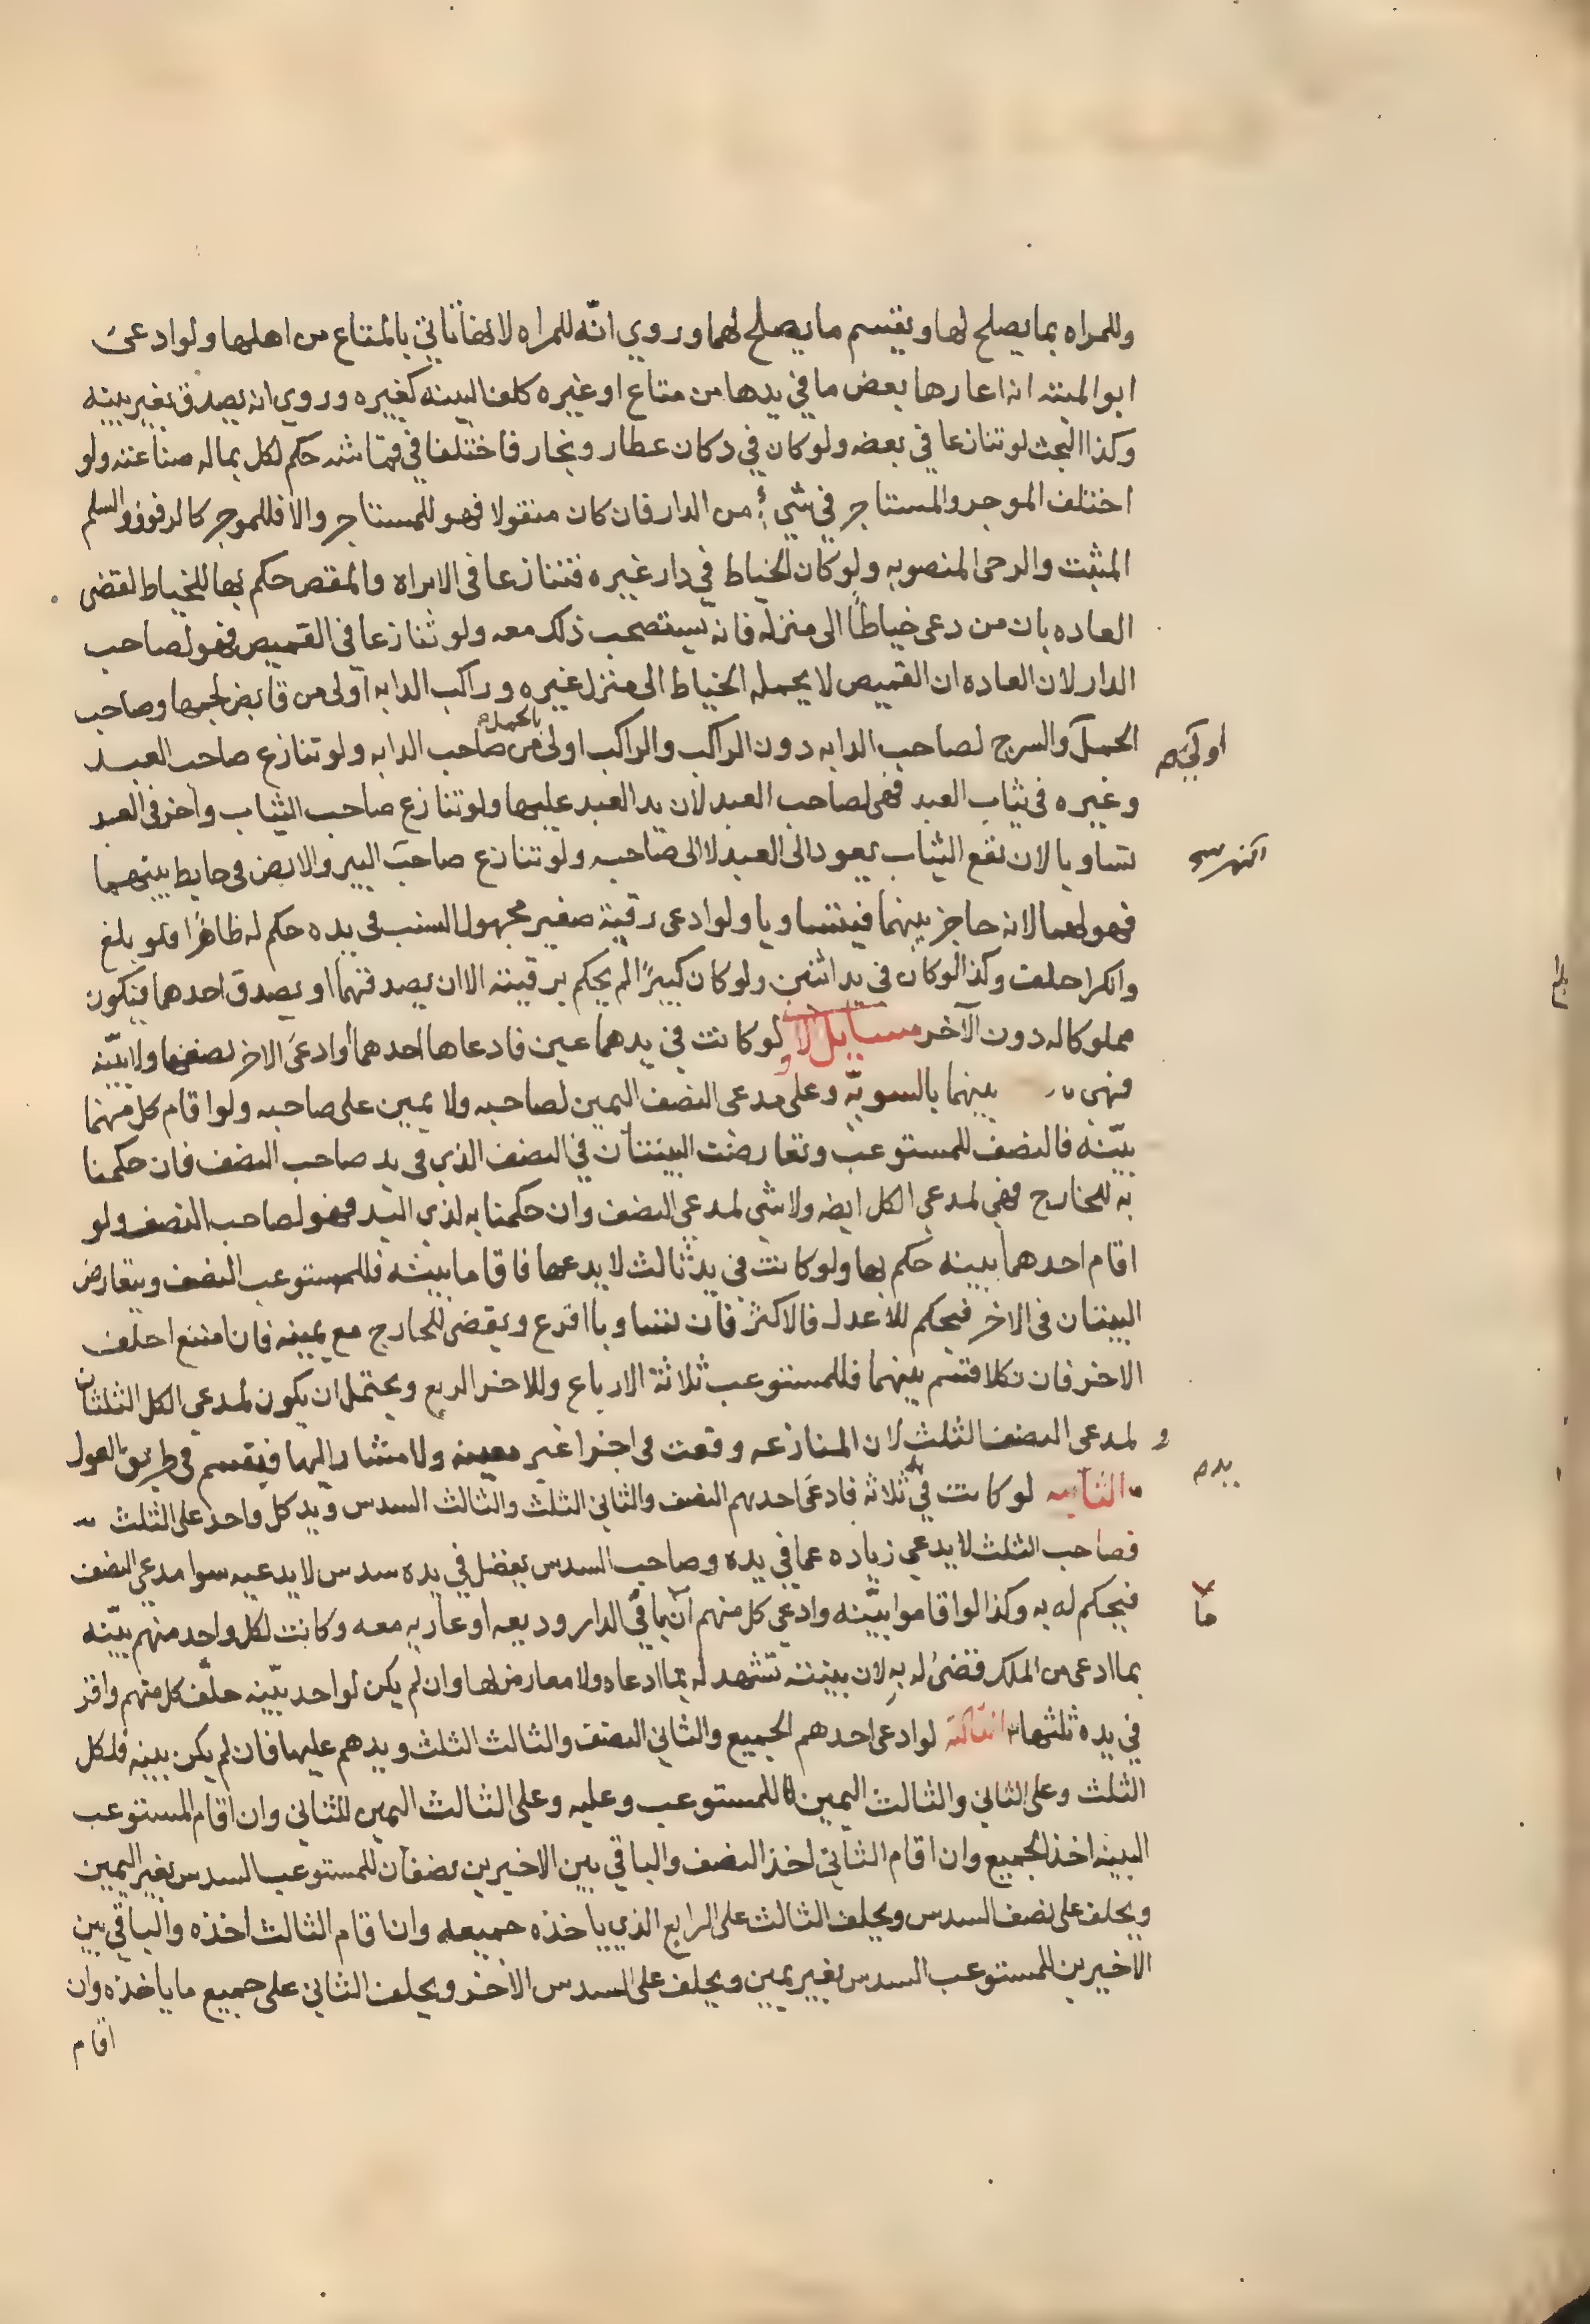 وللمراه بما يصلح لها ويقسم ما يصلح لهما وروي انّه للمراه لانها تاتي بالمتاع من اهلها ولو ادعى
ابو الميته انه اعارها بعض ما في يدها من متاع او غيره كلف البينه كغيره وروي انه يصدق بغير بينه
وكذا البحث لو تنازعا في بعضه ولو كان في دكان عطار ونجار فاختلفا في قماشه حكم لكل بماله صناعته ولو
اختلف الموجر والمستاجر في شيء من الدار فان كان منقولا فهو للمستاجر والا فللموجر كالرفوف والسلم
المثبت والرحى المنصوبه ولو كان الخياط في دار غيره فتنازعا فى الابراة والمقص حكم بها للخياط لقضى
العاده بان من دعى خياطًا الى منزله فانه يستصحب ذلك معه ولو تنازعا في القميص فهو لصاحب
الدار لان العاده ان القميص لا يحمله الخياط الى منزل غيره وراكب الدابه اولى من قابض لجمها وصاحب
الحمل والسرج لصاحب الدابه دون الراكب والراكب اولى بالحمل من صاحب الدابه ولو تنازع صاحب العبد
وغيره في ثياب العبد فهى لصاحب العبد لان يد العبد عليها ولو تنازع صاحب الثياب واخر فى العبد
تساويا لان نفع الثياب يعود الى العبد لا الى صاحبه ولو تنازع صاحب البير والارض فى حايط بينهما
فهو لهما لانه حاجز بينهما فيتساويا ولو ادعى رقية صغير مجهول النسب فى يده حكم له ظاهرًا فلو بلغ
وانكر احلف وكذا لو كان في يد اثنين ولو كان كبيرًا لم يحكم برقيته الا ان يصدقهما او يصدق احدهما فيكون
مملوكا له دون الآخر مسايل الاو لو كانت في يدهما عين فادعاها احدهما وادعى الاخر نصفها ولا بيّنه
فهى بينهما بالسويّه وعلى مدعى النصف اليمين لصاحبه ولا يمين على صاحبه ولو اقام كل منهما
بيّنه فالنصف للمستوعب وتعارضت البينتان في النصف الذي فى يد صاحب النصف فان حكمنا
به للخارج فهي لمدعي الكل ايضه ولا شي لمدعي النصف وان حكمنا به لذي اليد فهو لصاحب النصف ولو
اقام احدهما بينه حكم بها ولو كانت في يد ثالث لا يدعها فاقاما بينه فللمستوعب النصف ويتعارض
البينتان فى الاخر فيحكم للاعدل فالاكثر فان تساويا اقرع ويقضى للخارج مع يمينه فان امتنع احلف
الاخر فان نكلا قتسم بينهما فللمستوعب ثلاثة الارباع وللاخر الربع ويحتمل ان يكون لمدعي الكل الثلثان
و لمدعى النصف الثلث لان المنازعه وقعت فى اجزا غير معينه ولا مشار اليها فيقسم في طريق العول
الثانيه لو كانت في يد ثلاثه فادعى احدهم النصف والثاني الثلث والثالث السدس ويد كل واحد على الثلث
فصاحب الثلث لا يدعي زياده عما في يده وصاحب السدس يفضل في يده سدس لا يدعيه سوا مدعي النصف
فيحكم له به وكذا لو اقاموا بيّنه وادعي كل منهم ان بما في الدار وديعه او عاريه معه وكانت لكل واحد منهم بيّنه
بما ادعى من الملك قضى له به لان بينته تشهد له بما ادعاه ولا معارض لها وان لم يكن لواحد بيّنه حلّف كل منهم واقر
في يده ثلثها الثالثه لو ادعى احدهم الجميع والثاني النصف والثالث الثلث ويدهم عليها فان لم يكن بينه فلكل
الثلث وعلى الثاني والثالث اليمين للمستوعب وعليه وعلى الثالث اليمين للثاني وان اقام المستوعب
البينه اخذ الجميع وان اقام الثاني اخذ النصف والباقي بين الاخيرين نصفان للمستوعب السدس بغير اليمين
ويحلف على نصف السدس ويحلف الثالث على الرابع الذي ياخذه جميعه وان اقام الثالث اخذه والباقي بين
الاخيرين للمستوعب السدس بغير يمين ويحلف على السدس الاخر ويحلف الثاني على جميع ما ياخذه وان
اقام